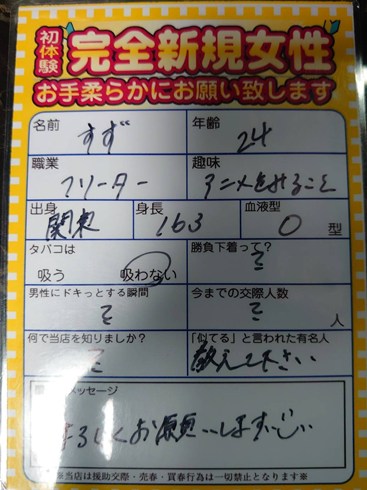 初体験
完全新規女性
お手柔らかにお願い致します
名前 すず 年齢 24
職業 フリーター 趣味 アニメをみること
出身 関東 身長 163 血液型 O 型
タバコは 吸う 吸わない 勝負下着って？
男性にドキっとする瞬間 今までの交際人数 人
何で当店を知りましたか？ 「似てる」と言われた有名人 教えて下さい
メッセージ
よろしくお願いします
当店は援助交際・売春・買春行為は一切禁止となります※